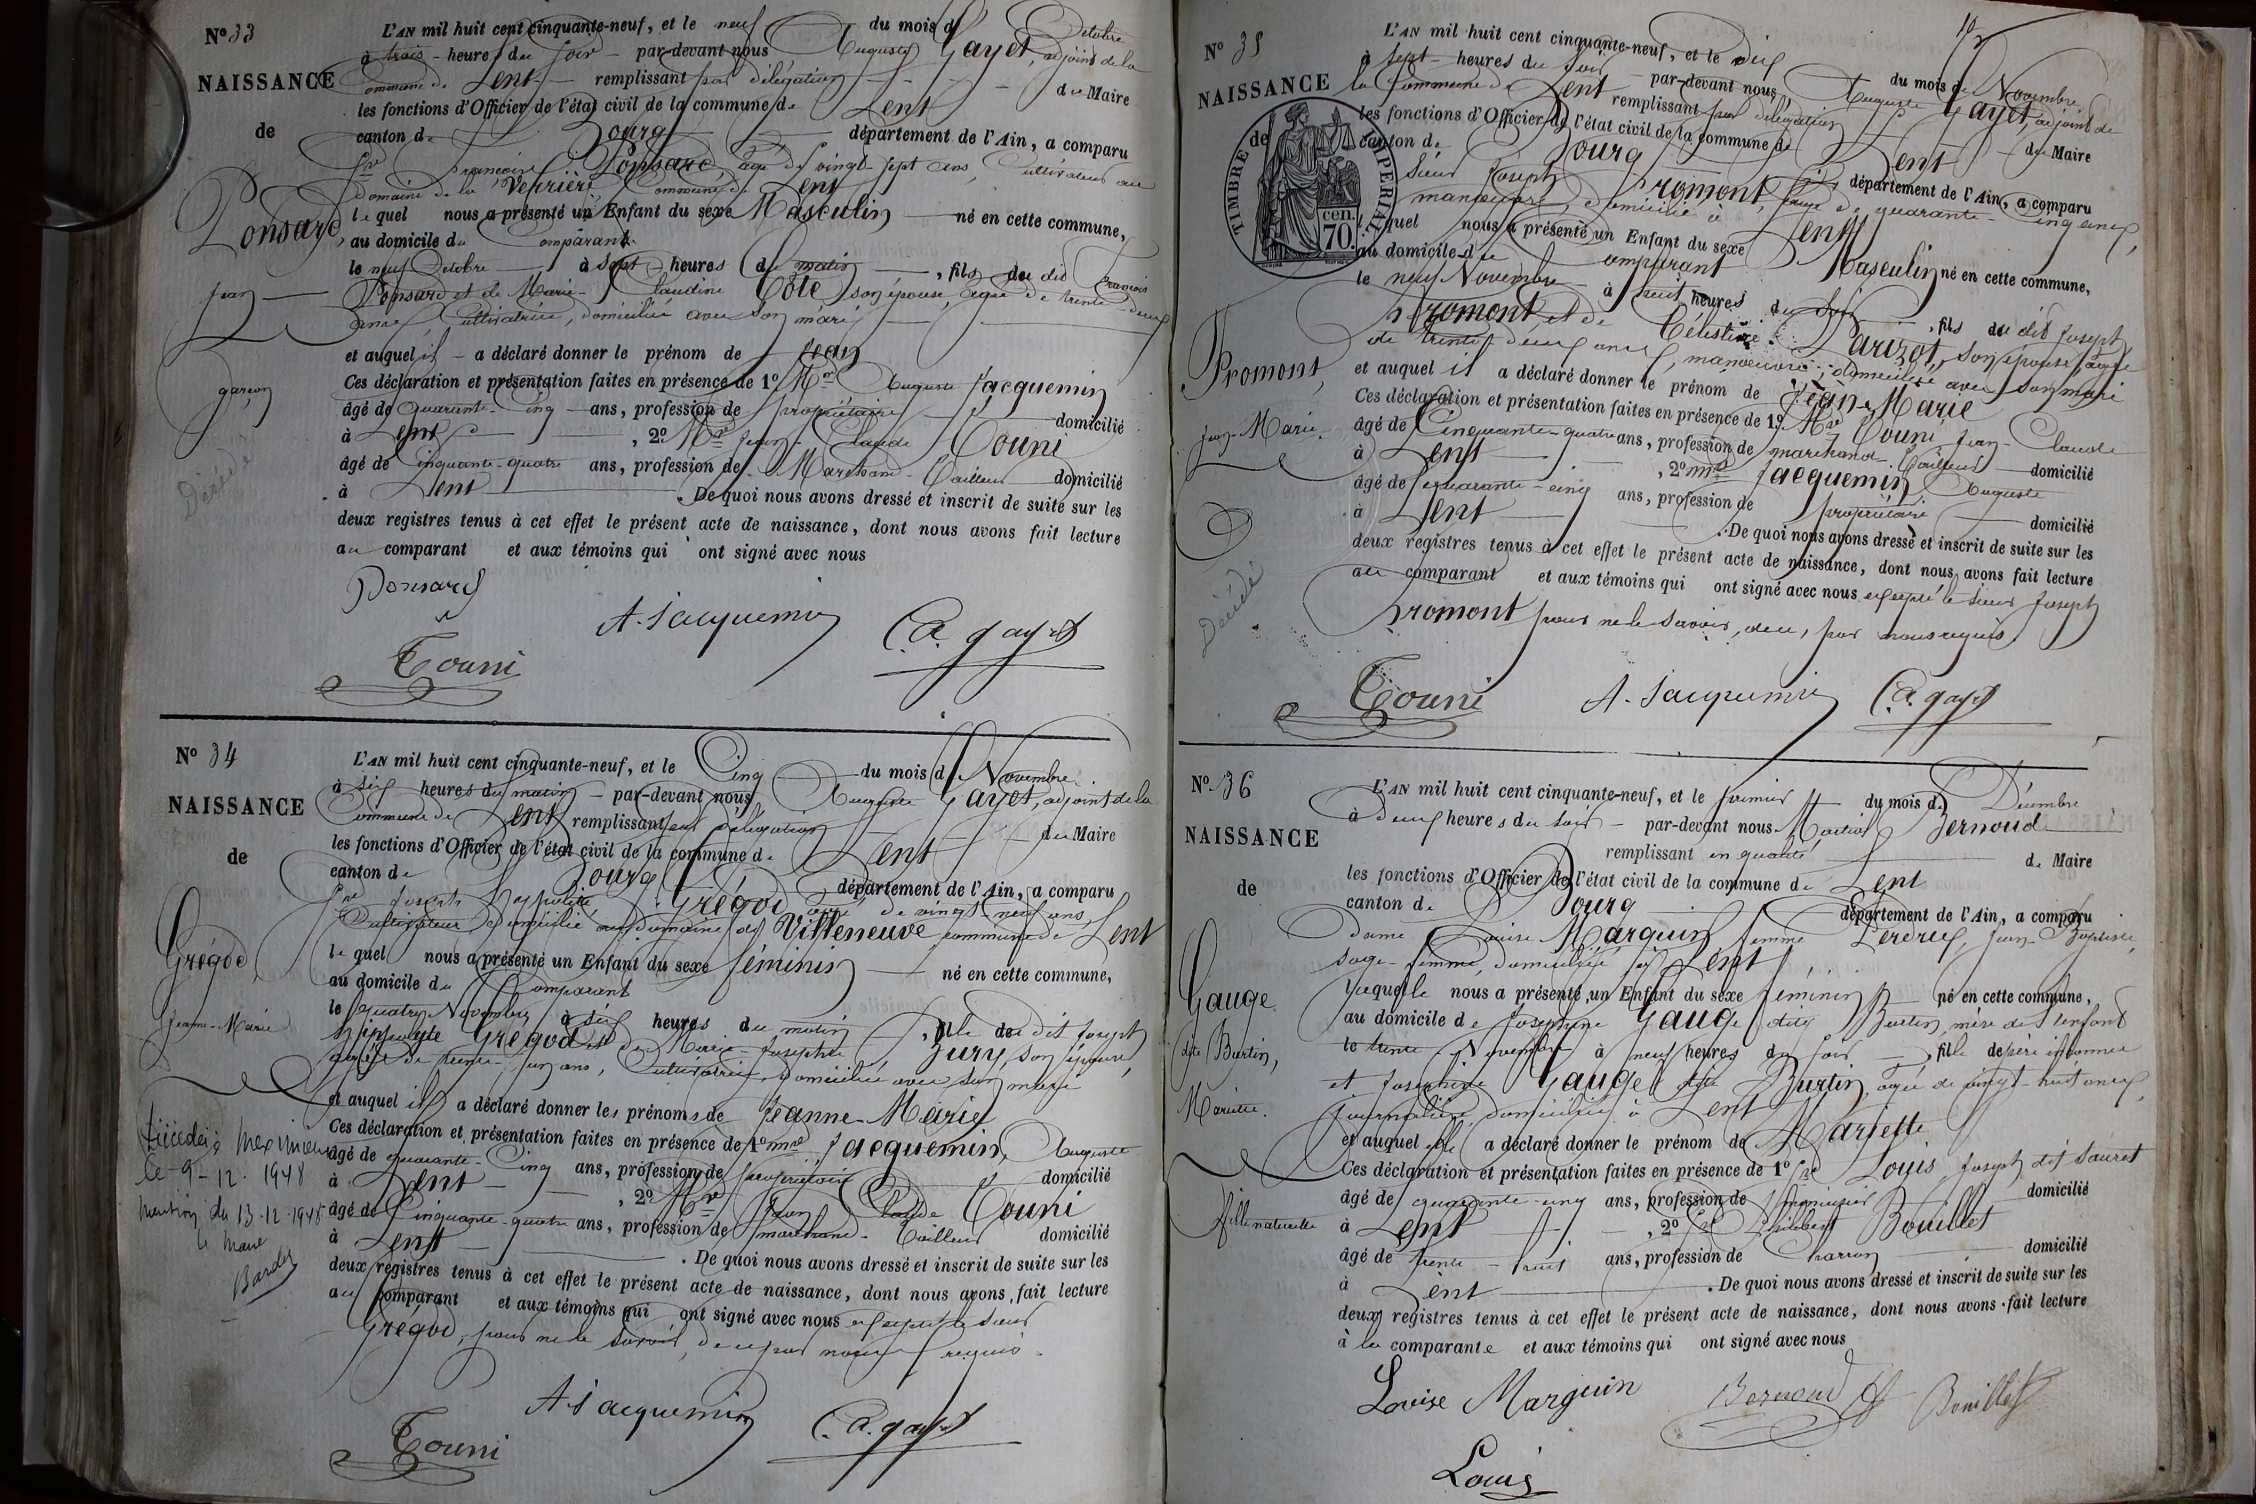 N° 33
NAISSANCE
de
Ponsard,
Jean
garçon
Décédé
L'AN mil huit cent cinquante-neuf, et le neuf du mois d'Octobre
à trois heures du soir par-devant nous Auguste Gayet, adjoint de la
Commune de Lent remplissant par délégation du Maire
les fonctions d'Officier de l'état civil de la commune de Lent
canton de Bourg département de l'Ain, a comparu
Sr François Ponsard, âgé de vingt-sept ans, cultivateur au
domaine de la Verrière Commune de Lent
lequel nous a présenté un Enfant du sexe Masculin né en cette commune,
au domicile du Comparant
le neuf Octobre à sept heures du matin, fils du dit François
Ponsard et de Marie-Claudine Côte, son épouse, âgée de trente-deux
ans, Cultivatrice, domiciliée avec son mari
et auquel il a déclaré donner le prénom de Jean
Ces déclaration et présentation faites en présence de 1° Mr Auguste Jacquemin
âgé de quarante-cinq ans, profession de propriétaire domicilié
à Lent, 2° Mr Jean-Claude Couni
âgé de Cinquante-quatre ans, profession de Marchand-Tailleur domicilié
à Lent. De quoi nous avons dressé et inscrit de suite sur les
deux registres tenus à cet effet le présent acte de naissance, dont nous avons fait lecture
au comparant et aux témoins qui ont signé avec nous
Ponsard
A. Jacquemin
C. A. gayet
Couni
N° 34
NAISSANCE
de
Grégod,
Jeanne-Marie
Décédée à Meximieux
le 9-12-1948
mention du 13-12-1948
le Maire
L'AN mil huit cent cinquante-neuf, et le Cinq du mois de Novembre
à six heures du matin par-devant nous Auguste Gayet, adjoint de la
Commune de Lent remplissant par délégation du Maire
les fonctions d'Officier de l'état civil de la commune de Lent
canton de Bourg département de l'Ain, a comparu
Sr Joseph Hyppolite Grégod âgé de vingt-neuf ans,
Cultivateur domicilié au domaine de Villeneuve commune de Lent
lequel nous a présenté un Enfant du sexe féminin né en cette commune,
au domicile du Comparant
le quatre Novembre à six heures du matin, fille du dit Joseph
Hippolyte Grégod et de Marie-Josephte Jury, son épouse,
âgée de trente-un ans, Cultivatrice, domiciliée avec son mari
et auquel il a déclaré donner les prénoms de Jeanne-Marie
Ces déclaration et présentation faites en présence de 1° Mr Jacquemin, Auguste
âgé de quarante-Cinq ans, profession de propriétaire domicilié
à Lent, 2° Mr Jean Claude Couni
âgé de Cinquante-quatre ans, profession de marchand-Tailleur domicilié
à Lent. De quoi nous avons dressé et inscrit de suite sur les
deux registres tenus à cet effet le présent acte de naissance, dont nous avons fait lecture
au comparant et aux témoins qui ont signé avec nous excepté le sieur
Grégod, pour ne le savoir, de ce par nous requis.
A. Jacquemin
C. A. gayet
Couni
N° 35
NAISSANCE
de
TIMBRE IMPERIAL
70. cen.
Promont,
Jean-Marie.
Décédé
L'AN mil huit cent cinquante-neuf, et le dix du mois de Novembre
à sept heures du soir par-devant nous Auguste Gayet, adjoint de
la Commune de Lent remplissant par délégation du Maire
les fonctions d'Officier de l'état civil de la commune de Lent
canton de Bourg département de l'Ain, a comparu
Sieur Joseph Promont, âgé de quarante-cinq ans,
manoeuvre, domicilié à Lent
lequel nous a présenté un Enfant du sexe Masculin né en cette commune,
au domicile du Comparant
le neuf Novembre à huit heures du soir, fils du dit Joseph
Promont et de Célestine Parizot, son épouse, âgée
de trente-deux ans, manoeuvre, domiciliée avec son mari
et auquel il a déclaré donner le prénom de Jean-Marie
Ces déclaration et présentation faites en présence de 1° Mr Couni, Jean-Claude
âgé de Cinquante-quatre ans, profession de marchand-Tailleur domicilié
à Lent, 2° Mr Jacquemin Auguste
âgé de quarante-cinq ans, profession de propriétaire domicilié
à Lent. De quoi nous avons dressé et inscrit de suite sur les
deux registres tenus à cet effet le présent acte de naissance, dont nous avons fait lecture
au comparant et aux témoins qui ont signé avec nous excepté le sieur Joseph
Promont pour ne le savoir, de ce, par nous requis
Couni
A. Jacquemin
C. A. gayet
N° 36
NAISSANCE
de
Gauge
dite Burtin,
Mariette.
fille naturelle
L'AN mil huit cent cinquante-neuf, et le premier du mois de Décembre
à deux heures du soir par-devant nous Martial Bernoud
remplissant en qualité de Maire
les fonctions d'Officier de l'état civil de la commune de Lent
canton de Bourg département de l'Ain, a comparu
dame Louise Marguin, femme Perdrix, Jean-Baptiste,
sage-femme, domiciliée à Lent
laquelle nous a présenté un Enfant du sexe féminin né en cette commune,
au domicile de Josephine Gauge dite Burtin, mère de l'enfant
le trente Novembre à neuf heures du soir, fille de père inconnu
et Josephine Gauge dite Burtin, âgée de vingt-huit ans,
journalière, domiciliée à Lent
et auquel elle a déclaré donner le prénom de Mariette
Ces déclaration et présentation faites en présence de 1° Sr Louis, Joseph dit Sauret
âgé de quarante-cinq ans, profession de menuisier domicilié
à Lent, 2° Sr Philibert Bouillet
âgé de trente-huit ans, profession de Charron domicilié
à Lent. De quoi nous avons dressé et inscrit de suite sur les
deux registres tenus à cet effet le présent acte de naissance, dont nous avons fait lecture
à la comparante et aux témoins qui ont signé avec nous
Louise Marguin
Bernoud
Bouillet
Louis